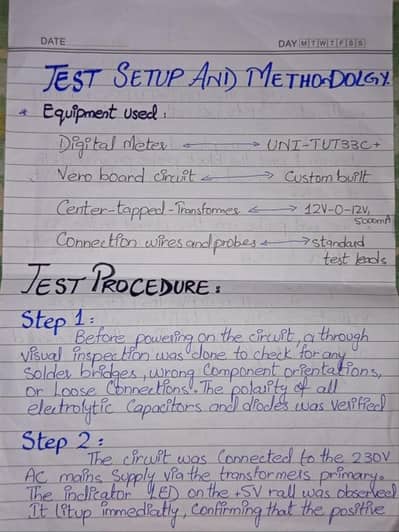 DATE
DAY M T W T F S S
TEST SETUP AND METHODOLGY.
* Equipment used:
Digital Meter ↔ UNI-TUT33C+
Vero board circuit ↔ Custom built
Center-tapped-Transformer ↔ 12V-0-12V,
5000mA
Connection wires and probes ↔ standard
test leads
TEST PROCEDURE:
Step 1:
Before powering on the circuit, a through
visual inspection was done to check for any
solder bridges, wrong component orientations,
or Loose Connections. The polarity of all
electrolytic Capacitors and diodes was verified
Step 2:
The circuit was Connected to the 230V
AC mains supply via the transformers primary.
The indicator LED on the +5V rail was observed
It litup immediatly, Confirming that the positive